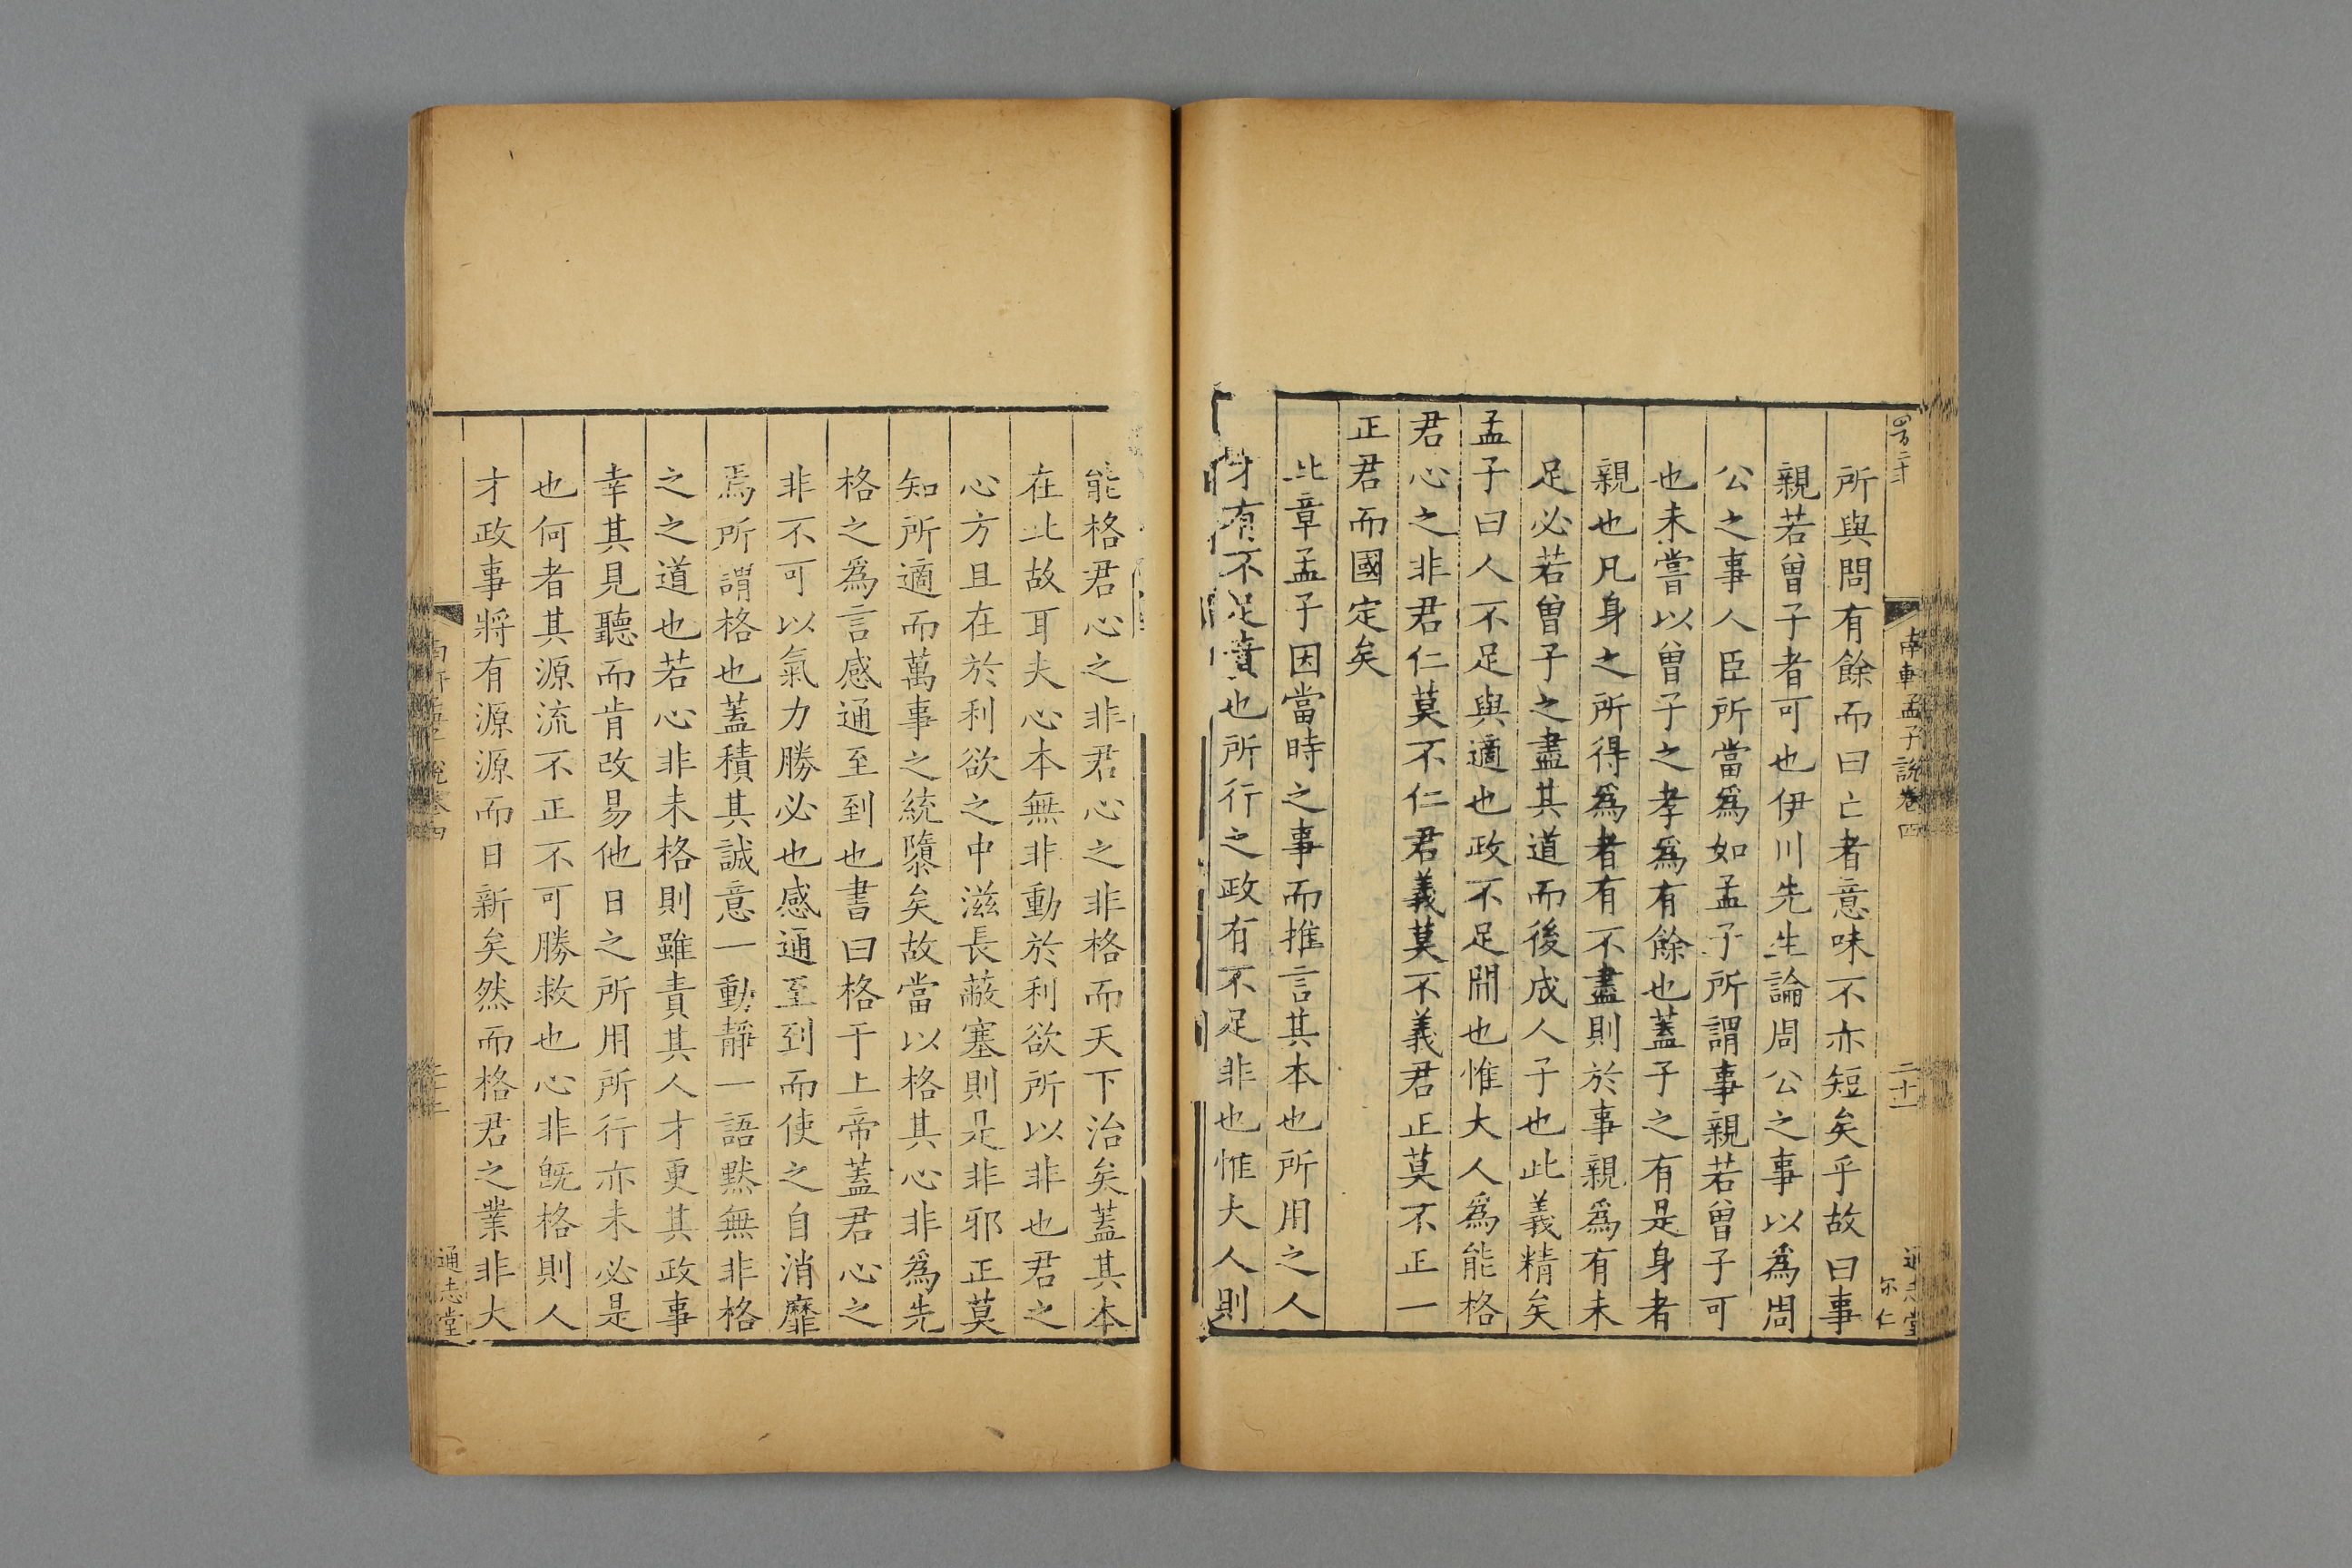 南軒孟子說卷四
二十一
通志堂
尓仁
所與問有餘而曰亡者意味不亦短矣乎故曰事
親若曾子者可也伊川先生論周公之事以爲周
公之事人臣所當爲如孟子所謂事親若曾子可
也未嘗以曾子之孝爲有餘也蓋子之有是身者
親也凡身之所得爲者有不盡則於事親爲有未
足必若曾子之盡其道而後成人子也此義精矣
孟子曰人不足與適也政不足閒也惟大人爲能格
君心之非君仁莫不仁君義莫不義君正莫不正一
正君而國定矣
此章孟子因當時之事而推言其本也所用之人
才有不足責也所行之政有不足非也惟大人則
能格君心之非君心之非格而天下治矣蓋其本
在此故耳夫心本無非動於利欲所以非也君之
心方且在於利欲之中滋長蔽塞則是非邪正莫
知所適而萬事之統隳矣故當以格其心非爲先
格之爲言感通至到也書曰格于上帝蓋君心之
非不可以氣力勝必也感通至到而使之自消靡
焉所謂格也蓋積其誠意一動靜一語默無非格
之之道也若心非未格則雖責其人才更其政事
幸其見聽而肯改易他日之所用所行亦未必是
也何者其源流不正不可勝救也心非旣格則人
才政事將有源源而日新矣然而格君之業非大
通志堂